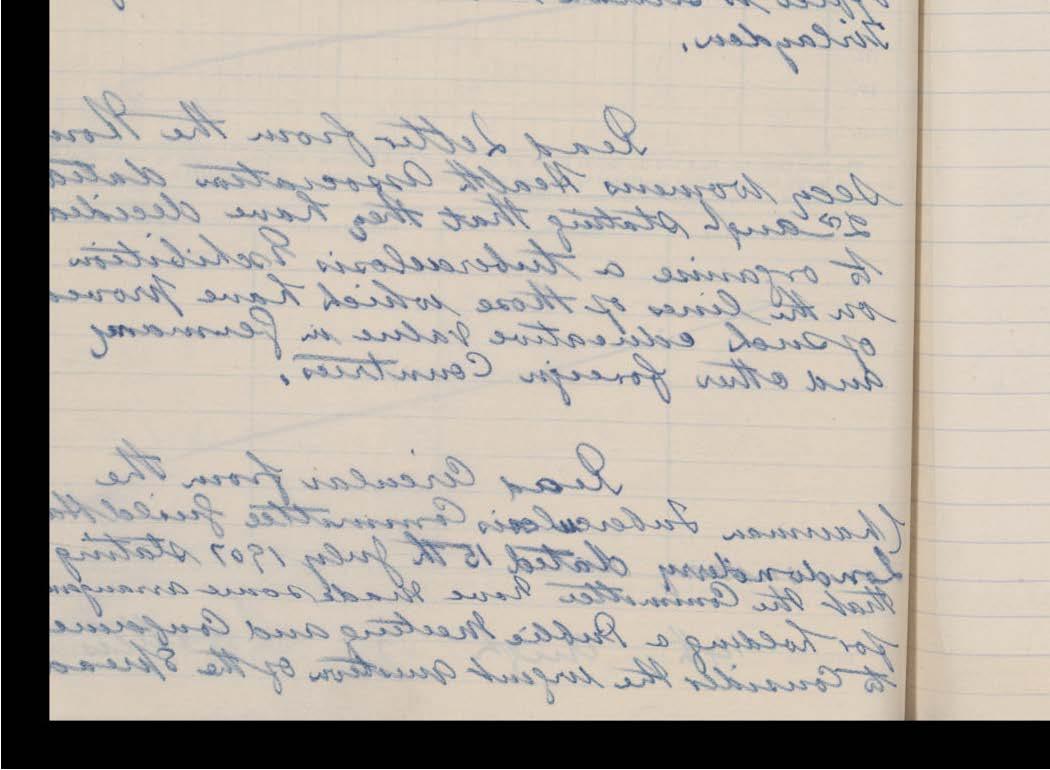 Finlayden.
Read Letter from the Hon
Secy Womens Health Association dated
2nd Augt stating that they have decided
to organise a tuberculosis Exhibition
on the lines of those which have proved
of such educative value in Germany
and other foreign Countries.
Read Circular from the
Chairman Tuberculosis Committee Guild Ha
Londonderry dated 15th July 1907 stating
that the Committee have made some arrangem
for holding a Public Meeting and Conferenc
to Consider the urgent question of the Spread